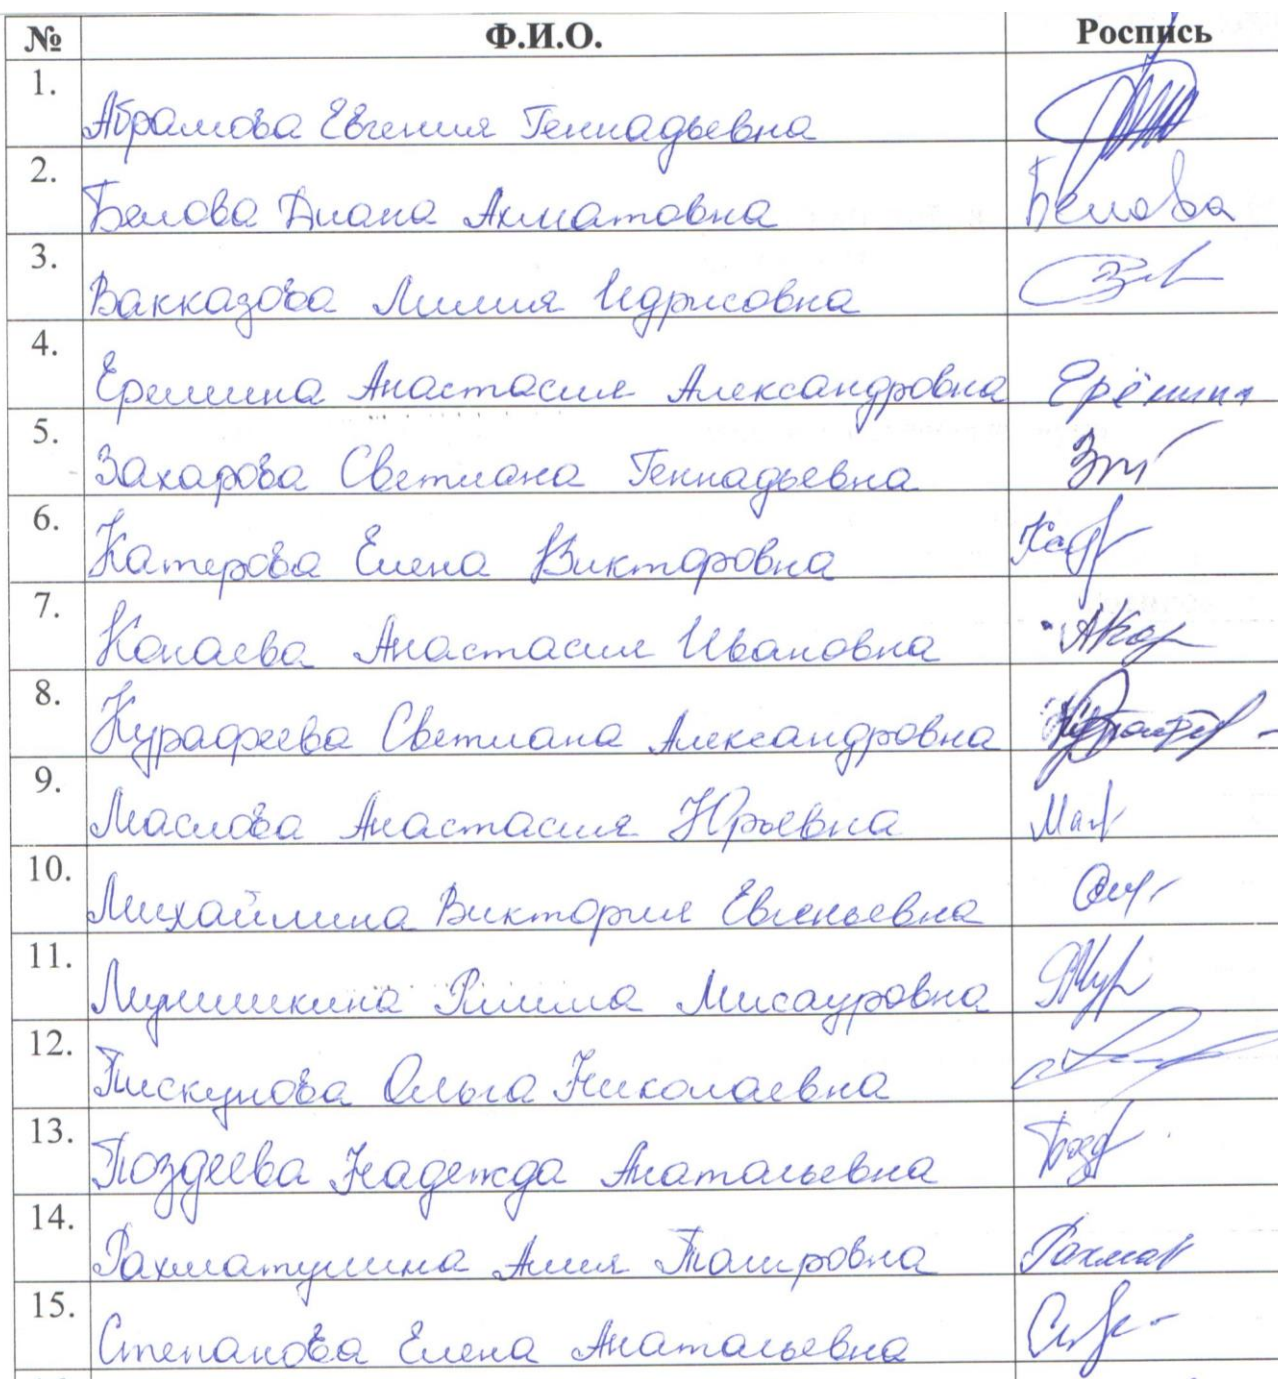 № Ф.И.О. Роспись
1. Абрамова Евгения Геннадьевна
2. Белова Диана Ахматовна Белова
3. Вакказова Лилия Идрисовна
4. Еремина Анастасия Александровна Ерёмина
5. Захарова Светлана Геннадьевна
6. Катерова Елена Викторовна
7. Конаева Анастасия Ивановна
8. Курафеева Светлана Александровна
9. Маслова Анастасия Юрьевна
10. Михайлина Виктория Евгеньевна
11. Римма
12. Пискунова Ольга Николаевна
13. Поздеева Надежда Анатольевна
14. Рахматулина Алия Таировна
15. Степанова Елена Анатольевна